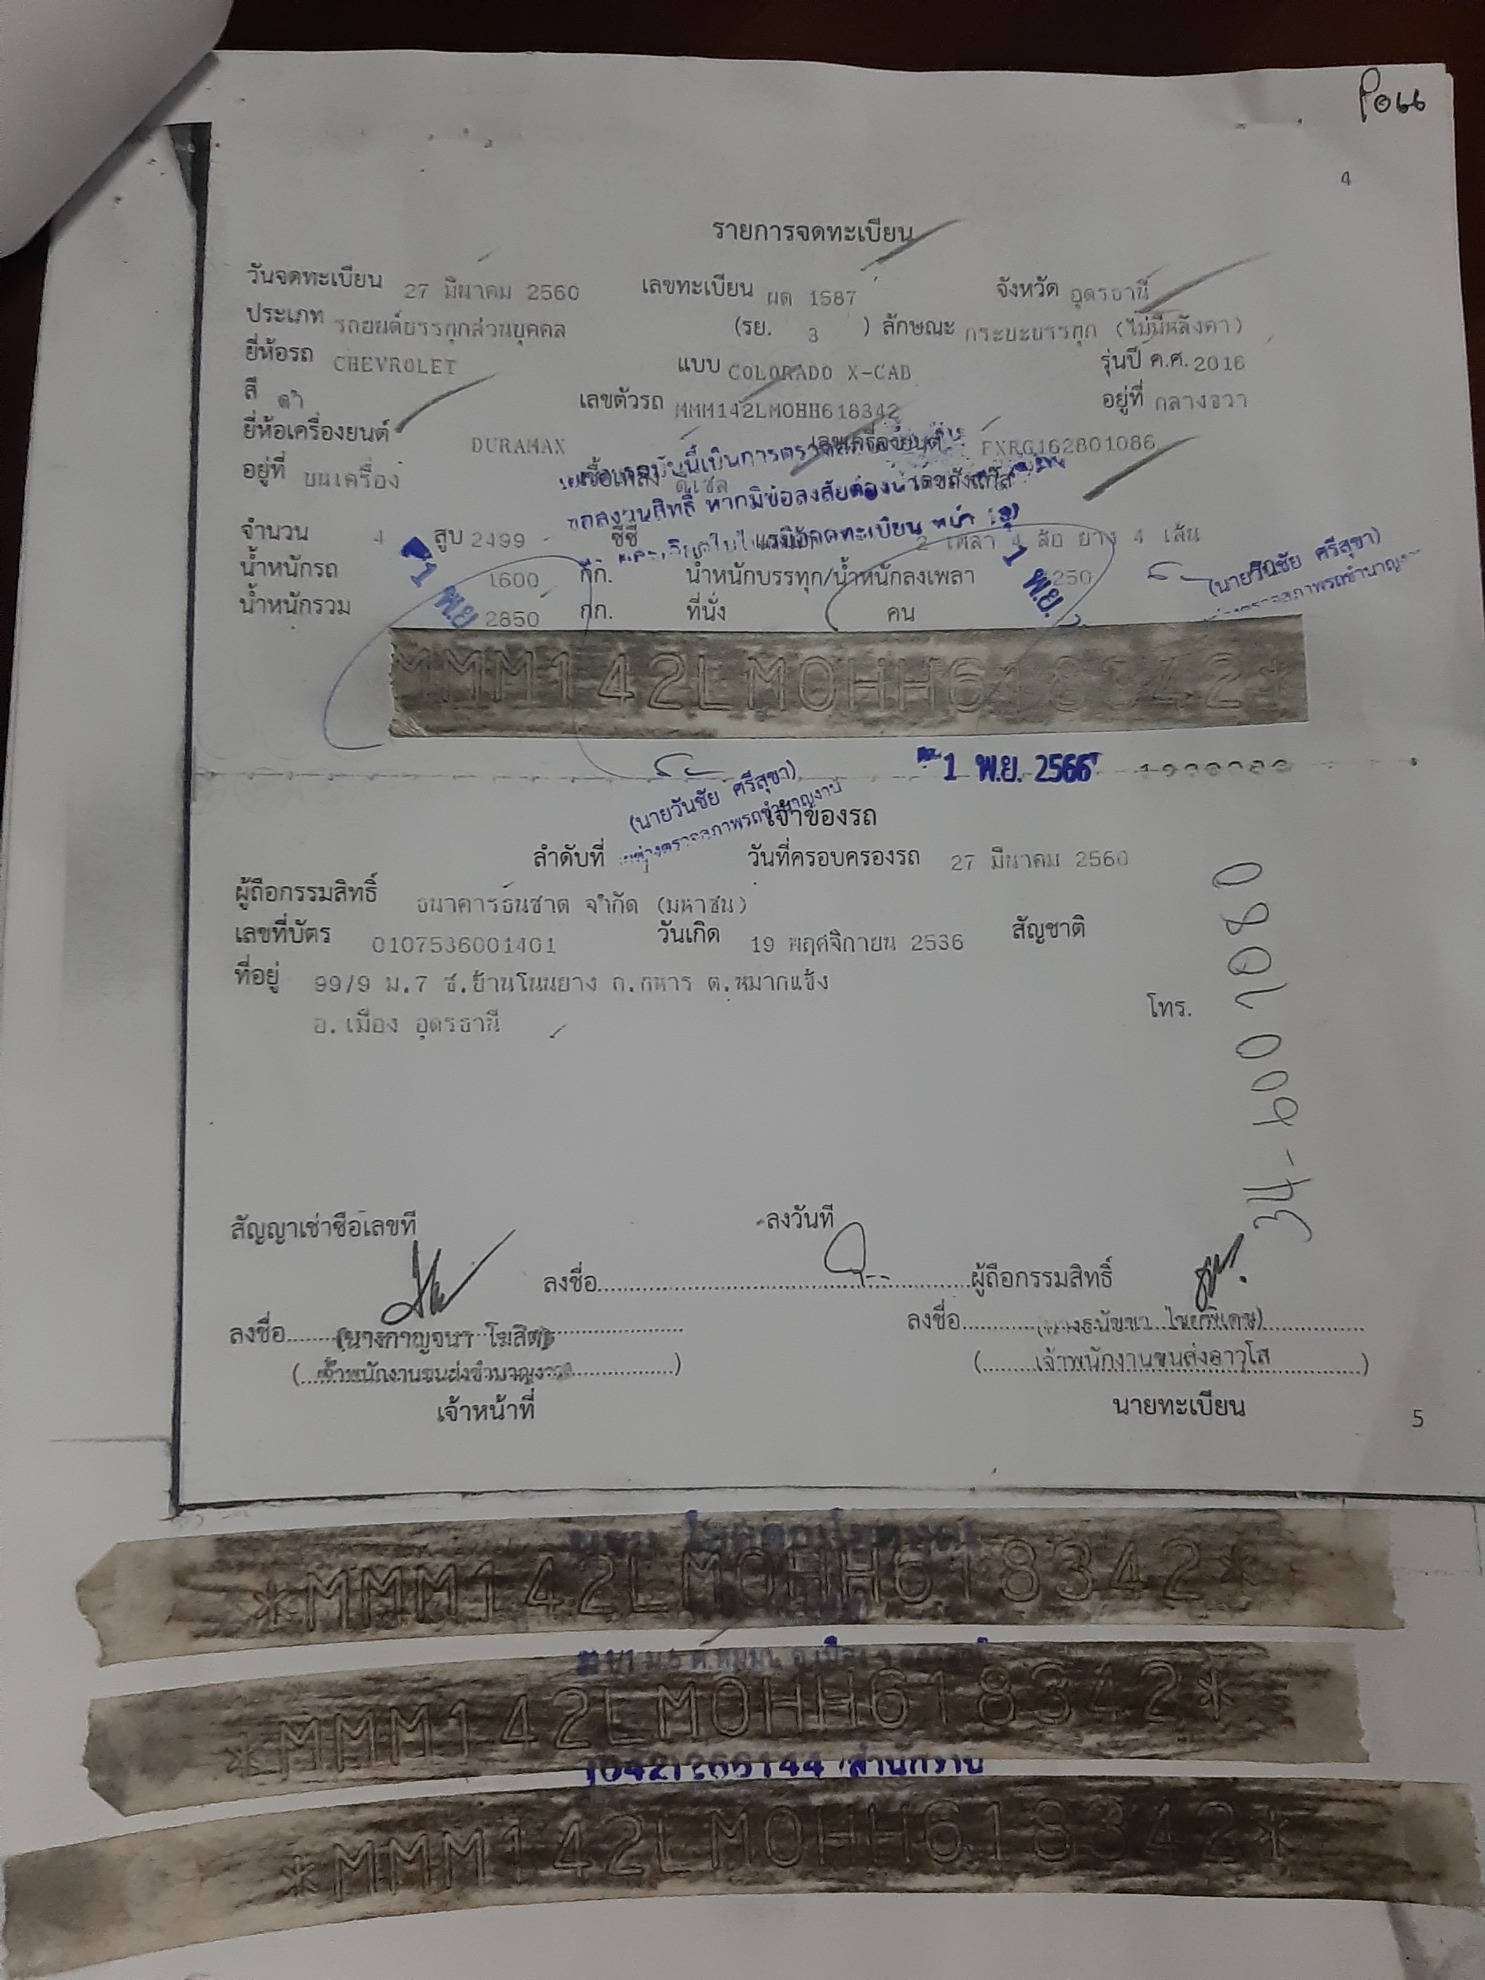 โอน
4
รายการจดทะเบียน
วันจดทะเบียน 27 มีนาคม 2560 เลขทะเบียน ผด 1587 จังหวัด อุดรธานี
ประเภท รถยนต์บรรทุกส่วนบุคคล (รย. 3 ) ลักษณะ กระบะบรรทุก (ไม่มีหลังคา)
ยี่ห้อรถ CHEVROLET แบบ COLORADO X-CAB รุ่นปี ค.ศ. 2016
สี ดำ เลขตัวรถ MMM142LM0HH618342 อยู่ที่ กลางขวา
ยี่ห้อเครื่องยนต์ DURAMAX เลขเครื่องยนต์ FXRG162801086
อยู่ที่ บนเครื่อง เชื้อเพลิง ดีเซล เลขถังแก๊ส
จำนวน 4 สูบ 2499 ซีซี แรงม้า 2 เพลา 4 ล้อ ยาง 4 เส้น
น้ำหนักรถ 1600 กก. น้ำหนักบรรทุก/น้ำหนักลงเพลา 250
น้ำหนักรวม 2850 กก. ที่นั่ง คน
1 พ.ย.
1 พ.ย.
(นายวันชัย ศรีสุขา)
MMM142LM0HH618342*
1 พ.ย. 2566
(นายวันชัย ศรีสุขา)
นายช่างตรวจสภาพรถชำนาญงาน
เจ้าของรถ
ลำดับที่ วันที่ครอบครองรถ 27 มีนาคม 2560
ผู้ถือกรรมสิทธิ์ ธนาคารธนชาต จำกัด (มหาชน)
เลขที่บัตร 0107536001401 วันเกิด 19 พฤศจิกายน 2536 สัญชาติ
ที่อยู่ 99/9 ม.7 ซ.บ้านโนนยาง ถ.ทหาร ต.หมากแข้ง
อ.เมือง อุดรธานี โทร.
สัญญาเช่าซื้อเลขที่ ลงวันที่
ลงชื่อ ผู้ถือกรรมสิทธิ์
ลงชื่อ (นางกาญจนา โฆสิต) ลงชื่อ
(เจ้าพนักงานขนส่งชำนาญงาน) (เจ้าพนักงานขนส่งอาวุโส)
เจ้าหน้าที่ นายทะเบียน
5
*MMM142LM0HH618342*
*MMM142LM0HH618342*
*MMM142LM0HH618342*